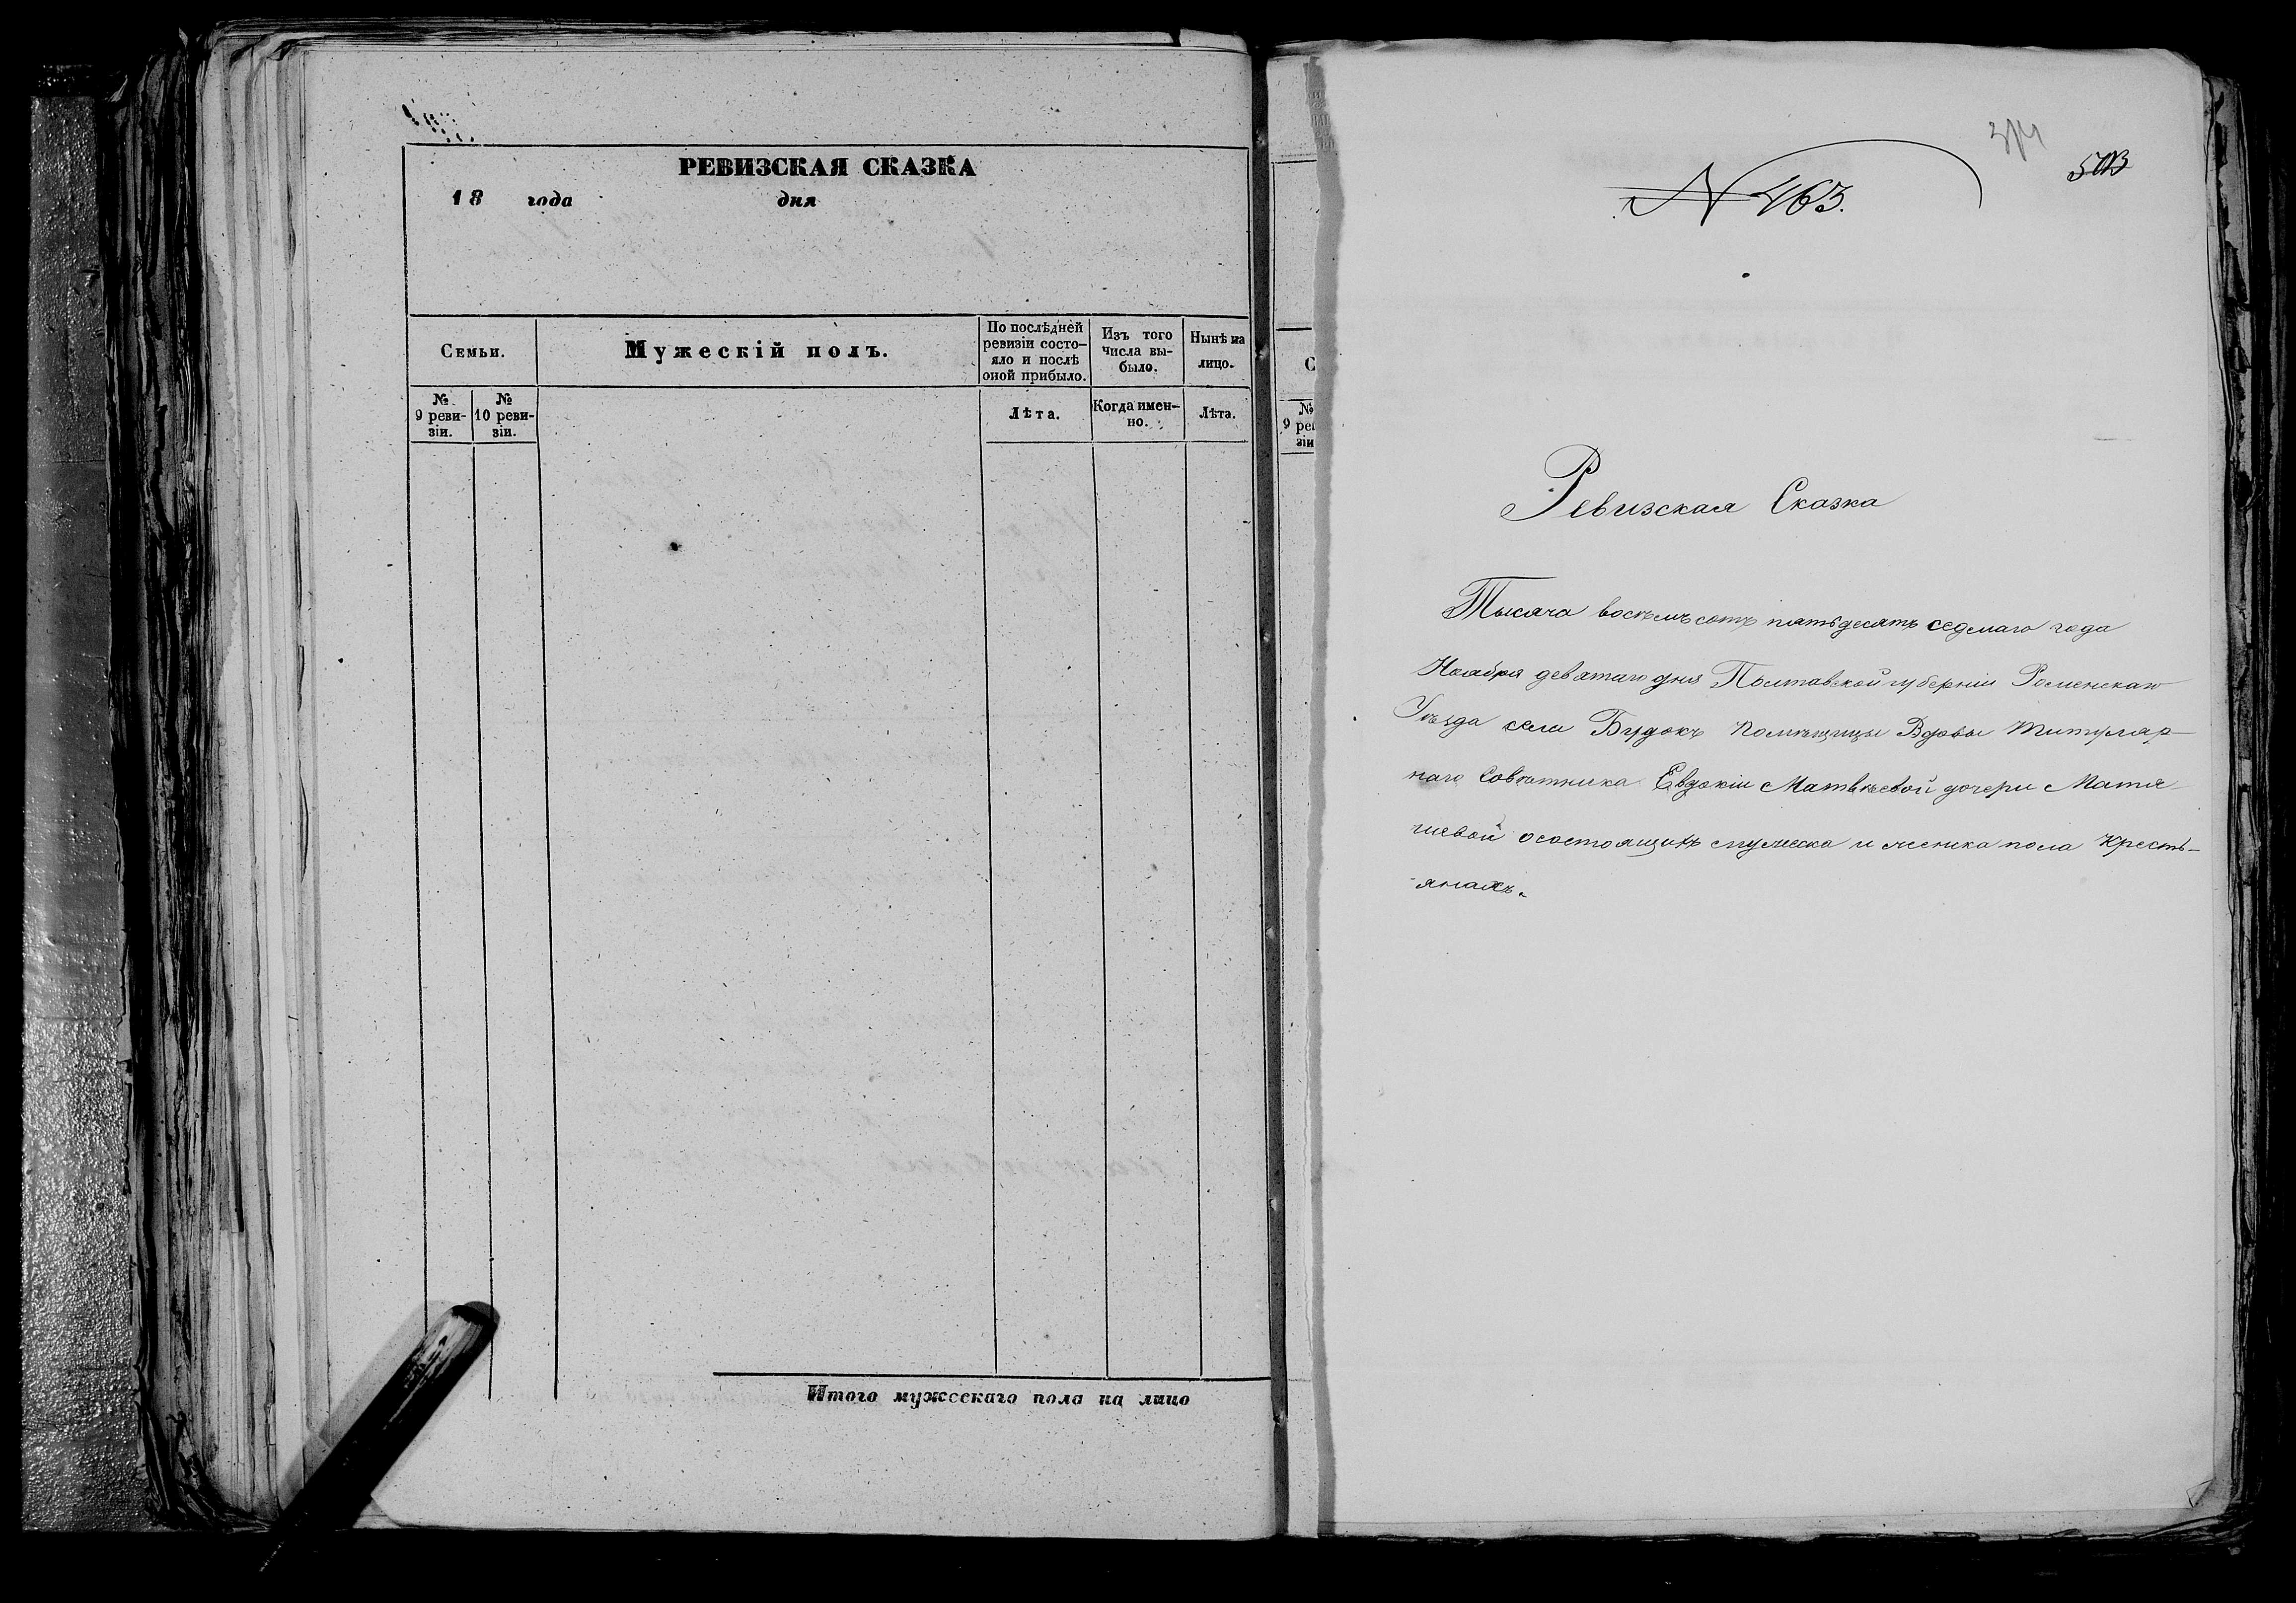 РЕВИЗСКАЯ СКАЗКА
18 года дня
Семьи.
Мужескій полъ.
По послѣдней
ревизіи состо-
яло и послѣ
оной прибыло.
Изъ того
числа вы-
было.
Нынѣ на
лицо.
№
9 реви-
зіи.
№
10 реви-
зіи.
Лѣта.
Когда имен-
но.
Лѣта.
Итого мужескаго пола на лицо
С
№
9 ре
зіи
N 463.
Ревизская Сказка
Тысяча восемьсотъ пятьдесятъ седмаго года
Ноября девятаго дня Полтавской губерніи Роменскаго
Уѣзда села Будокъ Помѣщицы Вдовы Титуляр-
наго Совѣтника Евдокіи Матвѣевой дочери
о состоящихъ мужеска и женска пола Кресть-
янахъ.